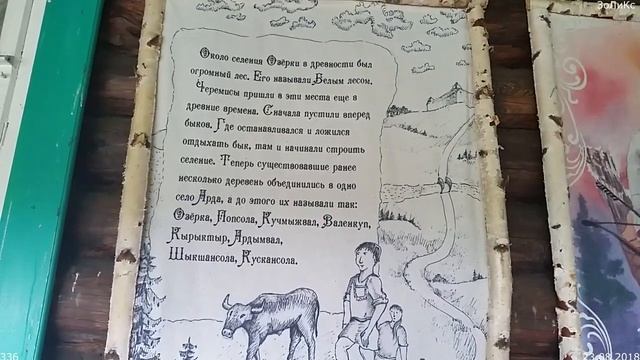 ЗоЛиКс
Около селения Озёрки в древности был
огромный лес. Его называли Белым лесом.
Черемисы пришли в эти места еще в
древние времена. Сначала пустили вперед
быков. Где останавливался и ложился
отдыхать бык, там и начинали строить
селение. Теперь существовавшие ранее
несколько деревень объединились в одно
село Арда, а до этого их называли так:
Озёрка, Попсола, Кучмыжвал, Валенкуп,
Кырыктыр, Ардымвал,
Шыкшансола, Кускансола.
336